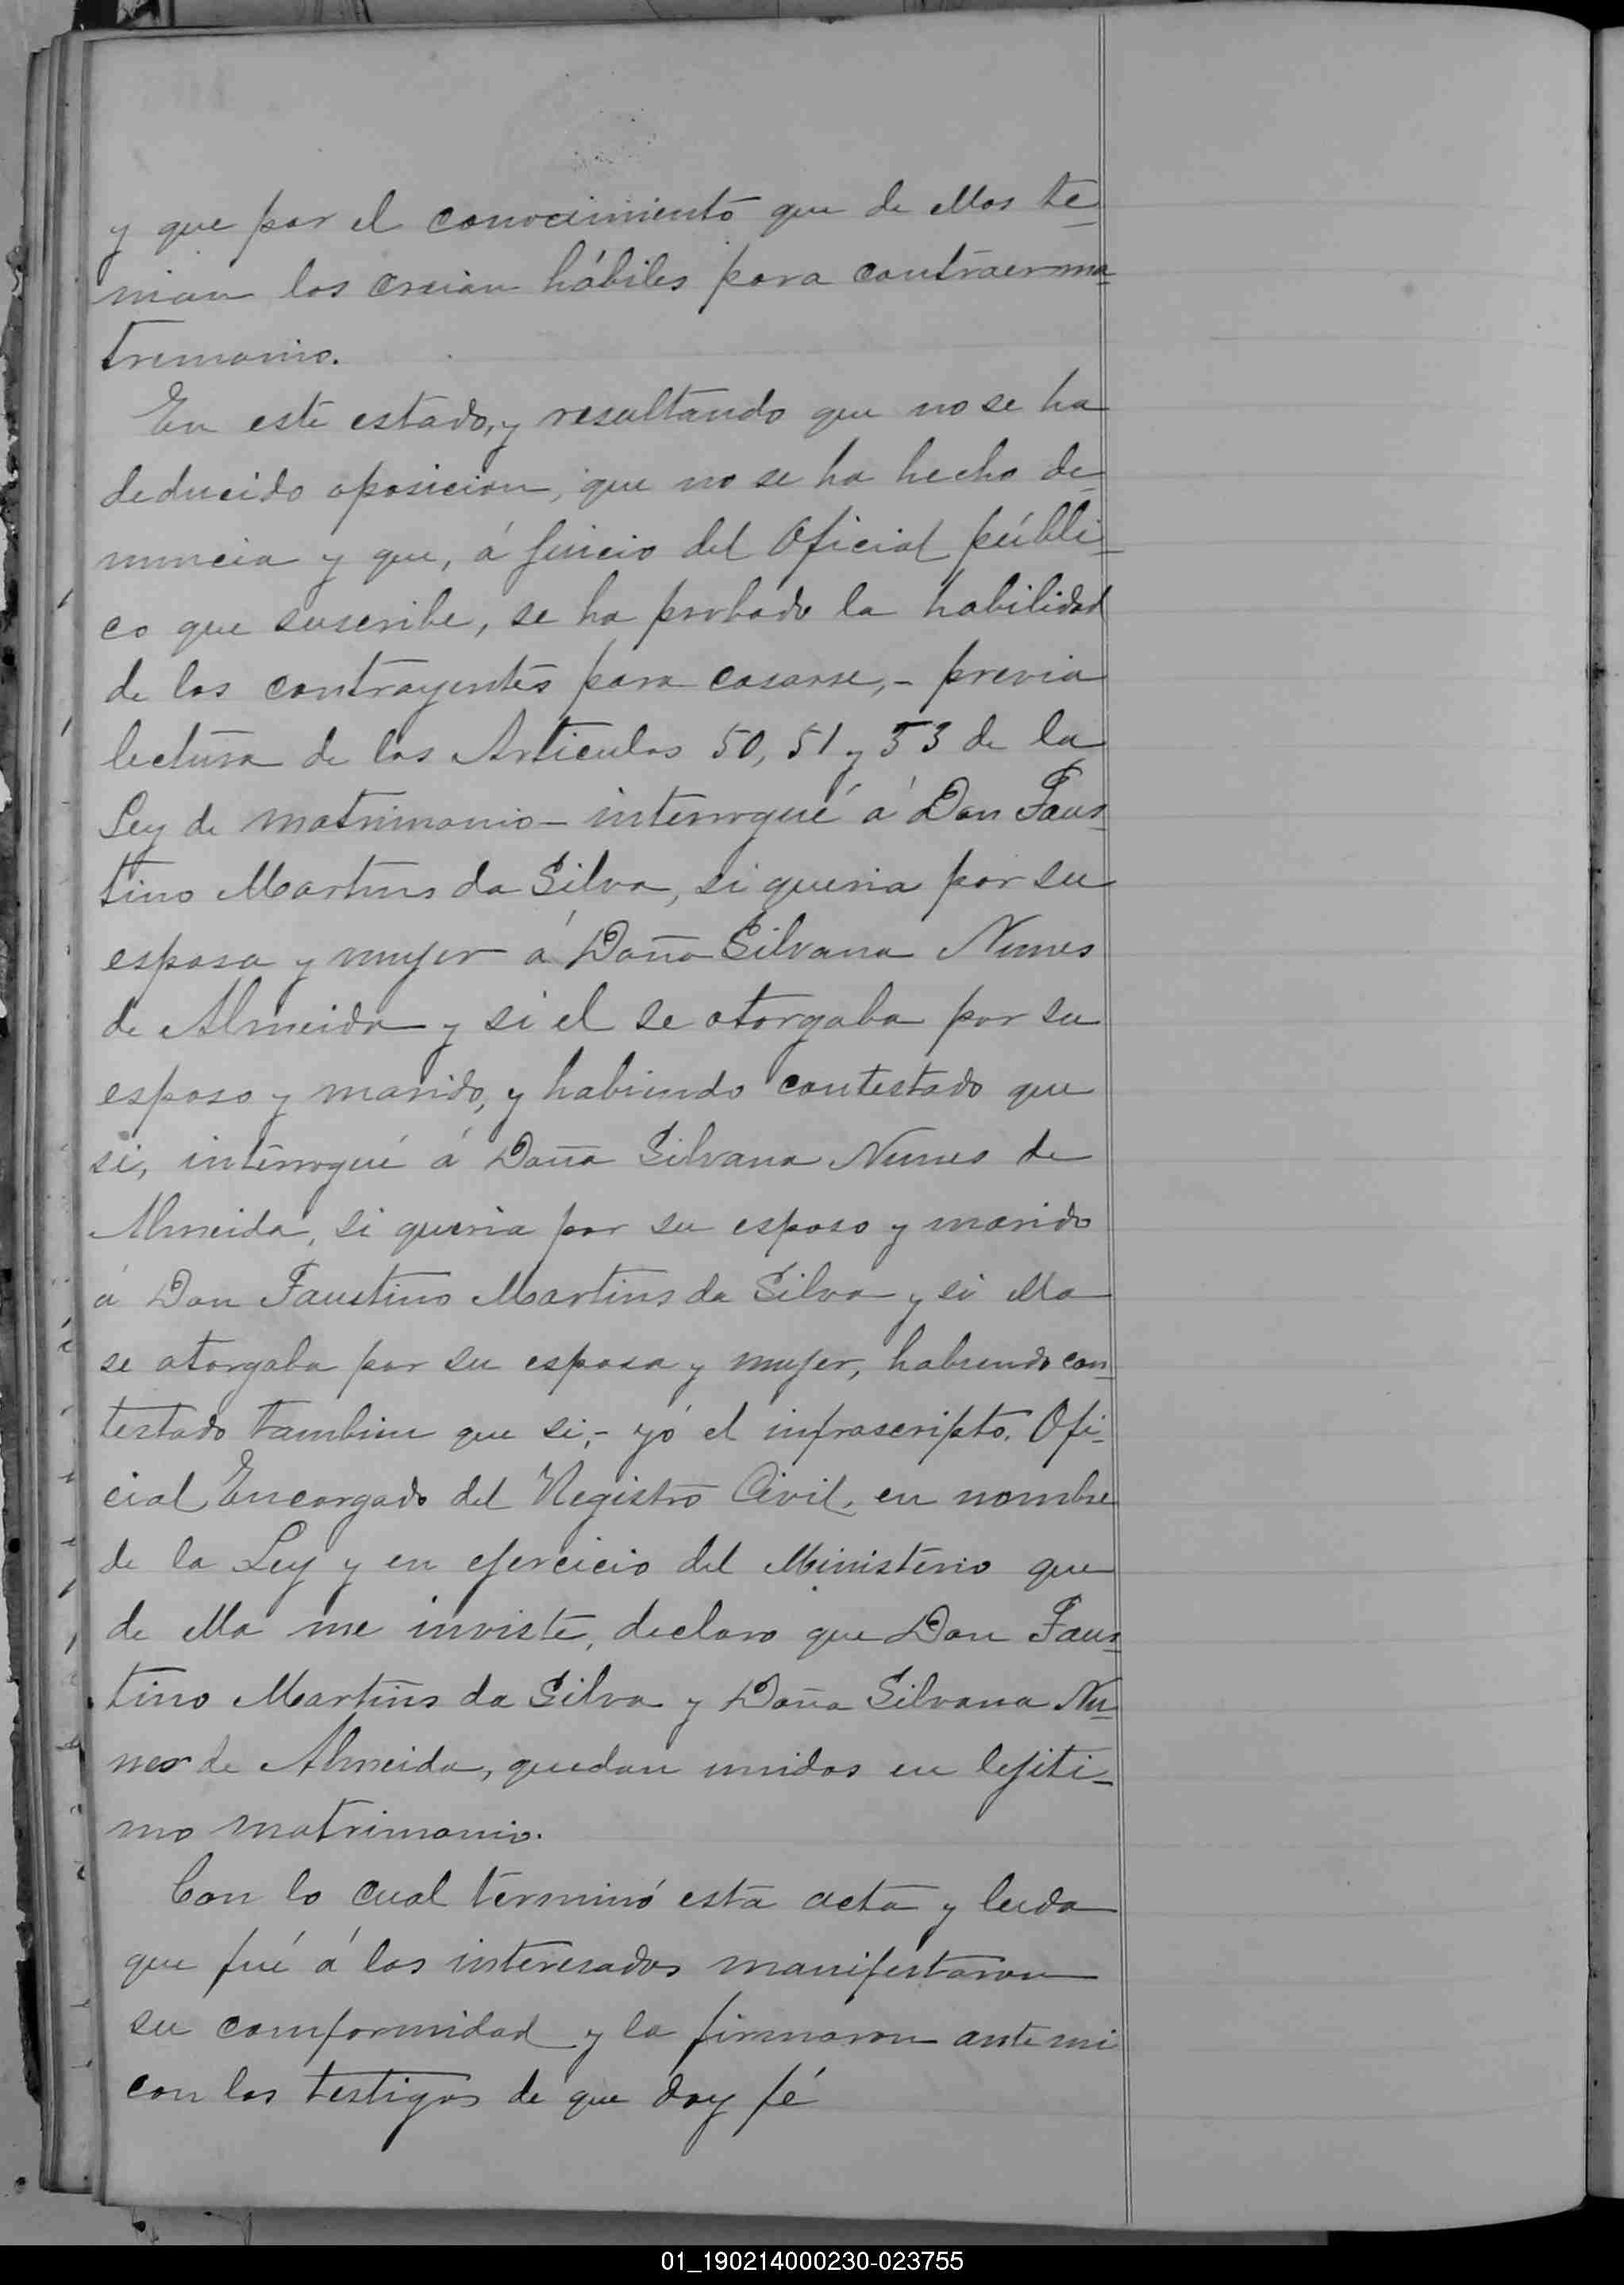 y que por el conocimiento que de ellos te-
nian los creian hábiles para contraer ma-
trimonio.
En este estado, y resultando que no se ha
deducido oposicion, que no se ha hecho de-
nuncia y que, á juicio del Oficial públi-
co que suscribe, se ha probado la habilidad
de los contrayentes para casarse,- previa
lectura de los Articulos 50, 51 y 53 de la
Ley de matrimonio - interrogué á Don Faus-
tino Martins da Silva, si queria por su
esposa y mujer á Doña Silvana Nunes
de Almeida y si el se otorgaba por su
esposo y marido, y habiendo contestado que
si, interrogué á Doña Silvana Nunes de
Almeida, si queria por su esposo y marido
á Don Faustino Martins da Silva y si ella
se otorgaba por su esposa y mujer, habiendo con-
testado tambien que si,- yó el infrascripto, Ofi-
cial Encargado del Registro Civil, en nombre
de la Ley y en ejercicio del Ministerio que
de ella me inviste, declaro que Don Faus-
tino Martins da Silva y Doña Silvana Nu-
nes de Almeida, quedan unidos en lejiti-
mo matrimonio.
Con lo cual terminó esta acta y leida
que fué á los interesados manifestaron
su comformidad y la firmaron ante mi
con los testigos de que doy fé
01_190214000230-023755